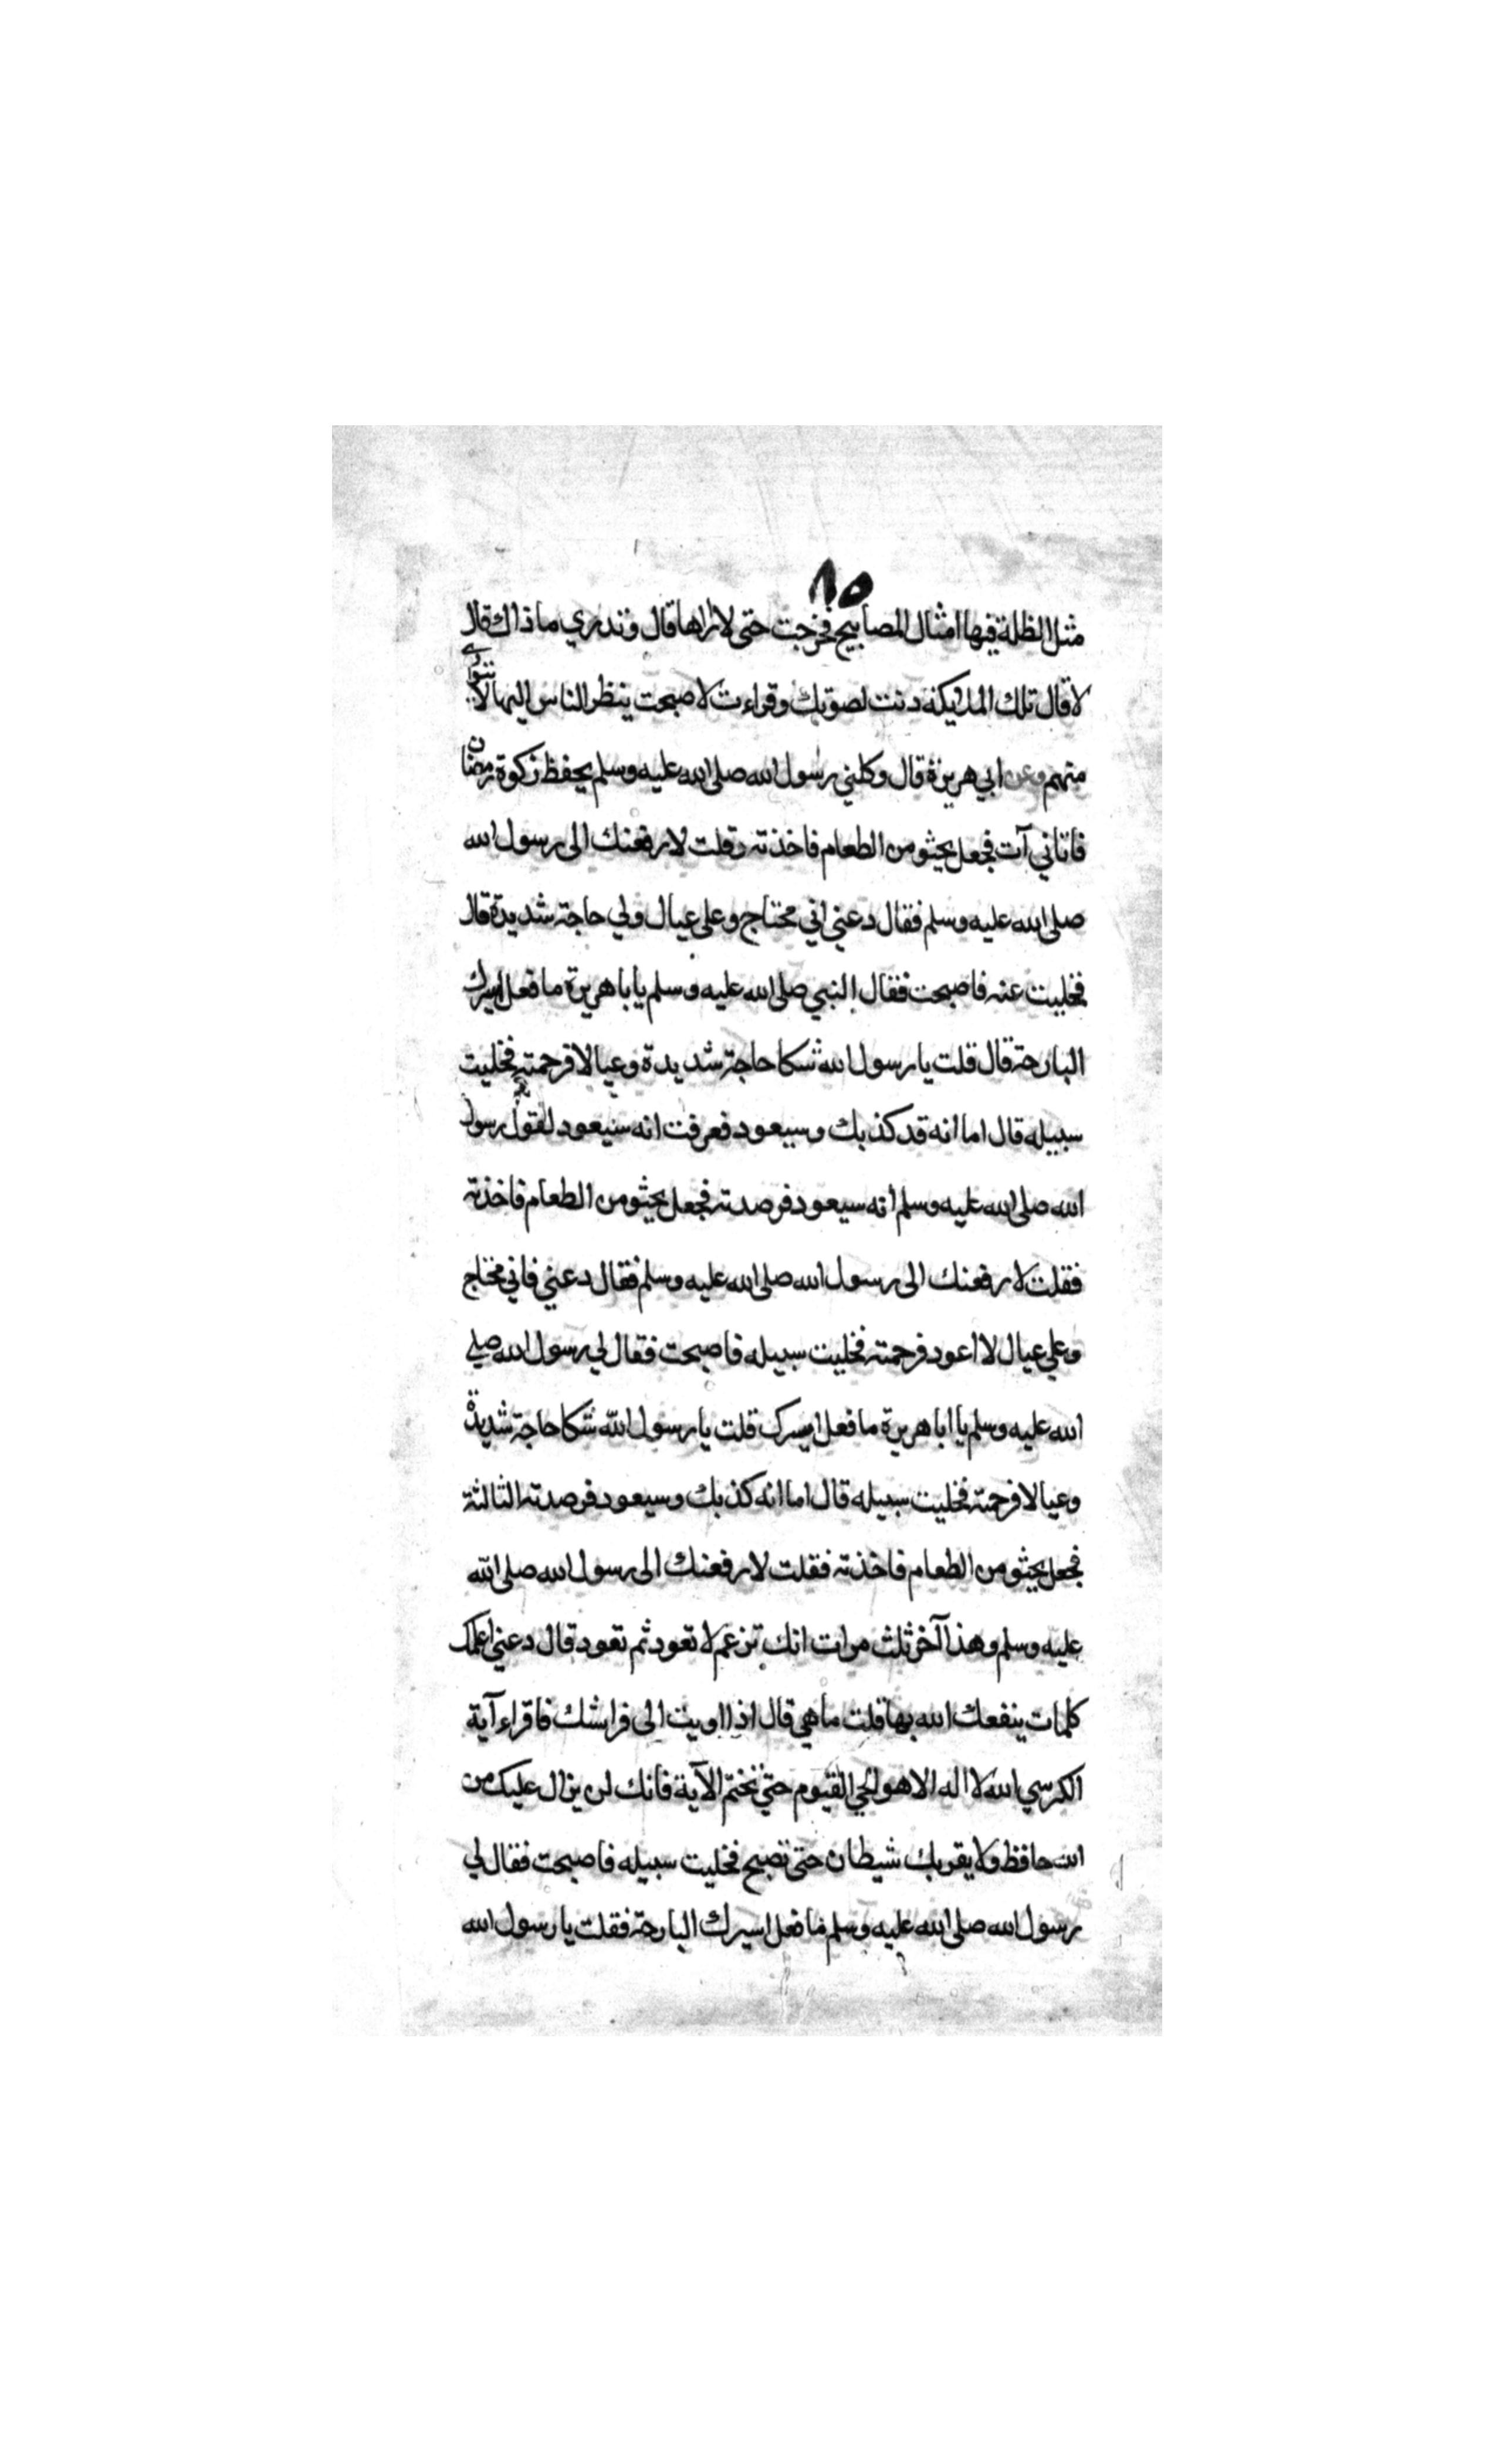 ١٥
مثل الظلة فيها امثال المصابيح فخرجت حتى لا اراها قال وتدري ما ذاك قال
لا قال تلك الملئكة دنت لصوتك وقراءت لاصبحت ينظر الناس اليها لا تتوارى
منهم وعن ابي هريرة قال وكلني رسول الله صلى الله عليه وسلم بحفظ زكوة رمضان
فاتاني آت فجعل يحثو من الطعام فاخذته وقلت لارفعنك الى رسول الله
صلى الله عليه وسلم فقال دعني اني محتاج وعلى عيال ولي حاجة شديدة قال
فخليت عنه فاصبحت فقال النبي صلى الله عليه وسلم يا با هريرة ما فعل اسيرك
البارحة قال قلت يا رسول الله شكا حاجة شديدة وعيالا فرحمته فخليت
سبيله قال اما انه قد كذبك وسيعود فعرفت انه سيعود لقول رسول
الله صلى الله عليه وسلم انه سيعود فرصدته فجعل يحثو من الطعام فاخذته
فقلت لارفعنك الى رسول الله صلى الله عليه وسلم فقال دعني فاني محتاج
وعلي عيال لا اعود فرحمته فخليت سبيله فاصبحت فقال لي رسول الله صلى
الله عليه وسلم يا ابا هريرة ما فعل اسيرك قلت يا رسول الله شكا حاجة شديدة
وعيالا فرحمته فخليت سبيله قال اما انه كذبك وسيعود فرصدته الثالثة
فجعل يحثو من الطعام فاخذته فقلت لارفعنك الى رسول الله صلى الله
عليه وسلم وهذا آخر ثلث مرات انك تزعم لا تعود ثم تعود قال دعني اعلمك
كلمات ينفعك الله بها قلت ما هي قال اذا اويت الى فراشك فاقراء آية
الكرسي الله لا اله الا هو الحي القيوم حتي تختم الآية فانك لن يزال عليك من
الله حافظ ولا يقربك شيطان حتى تصبح فخليت سبيله فاصبحت فقال لي
رسول الله صلى الله عليه وسلم ما فعل اسيرك البارحة فقلت يا رسول الله